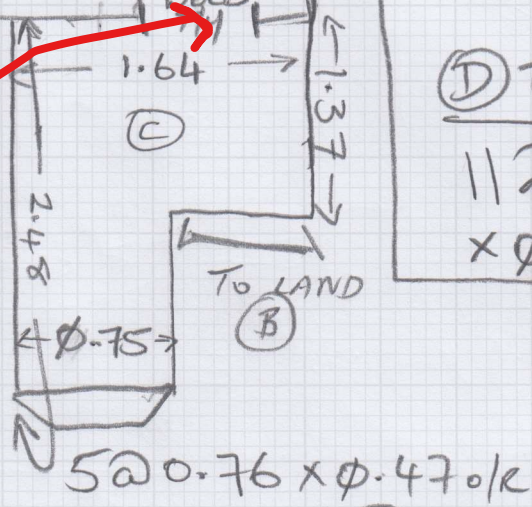 1.64
1.37
C
D
2.48
TO LAND
B
Ø.75
xØ
5@0.76 xØ.47 o/R